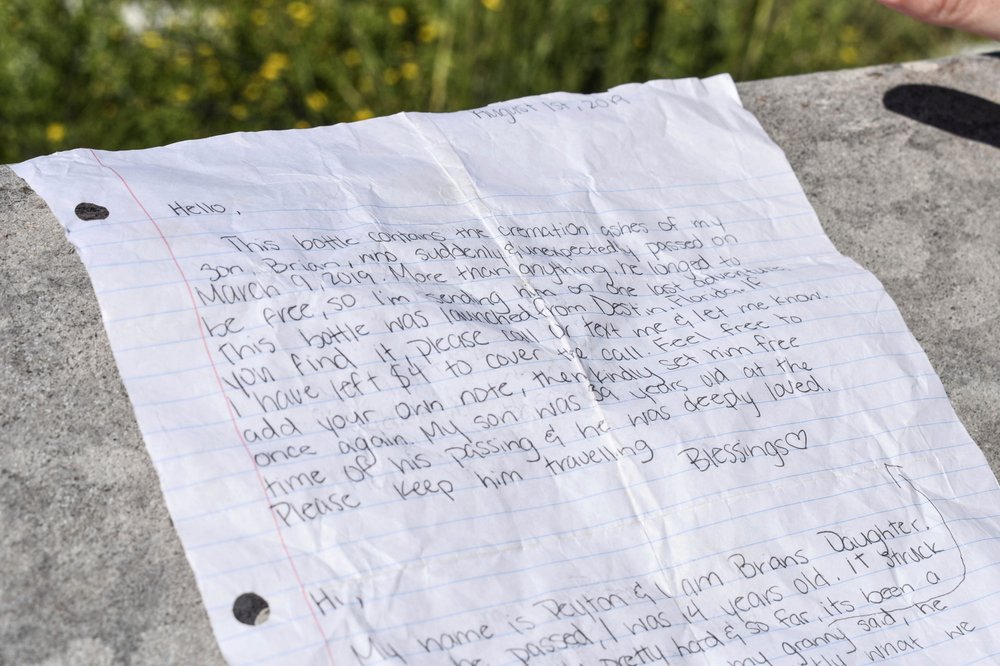 August 1st, 2019
Hello,
This bottle contains the cremation ashes of my
son, Brian, who suddenly & unexpectedly passed on
March 9, 2019. More than anything, he longed to
be free, so I'm sending him on one last adventure.
This bottle was launched from Destin, Florida. If
you find it please call or text me & let me know.
I have left $4 to cover the call. Feel free to
add your own note, then kindly set him free
once again. My son was 39 years old at the
time of his passing & he was deeply loved.
Please keep him travelling Blessings♡
Hi,
My name is Peyton & I am Brians Daughter.
he passed, I was 14 years old. it struck
pretty hard & so far, its been a
my granny said, he
what we